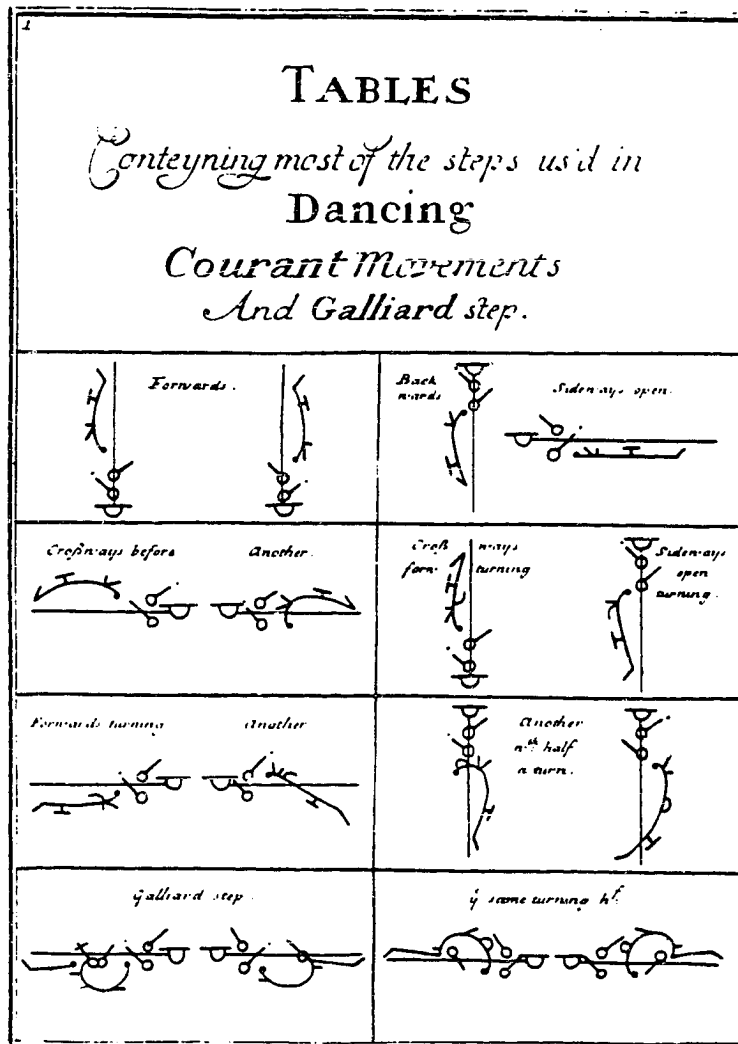 1
TABLES
Conteyning most of the steps us'd in
Dancing
Courant Movements
And Galliard step.
Forwards.
Back
wards
Sideways open.
Croſsways before
Another.
Croſs ways
forw. turning
Sideways
open
turning.
Forwards turning
Another
Another
wth. half
a turn.
Galliard step.
ÿ same turning hf.